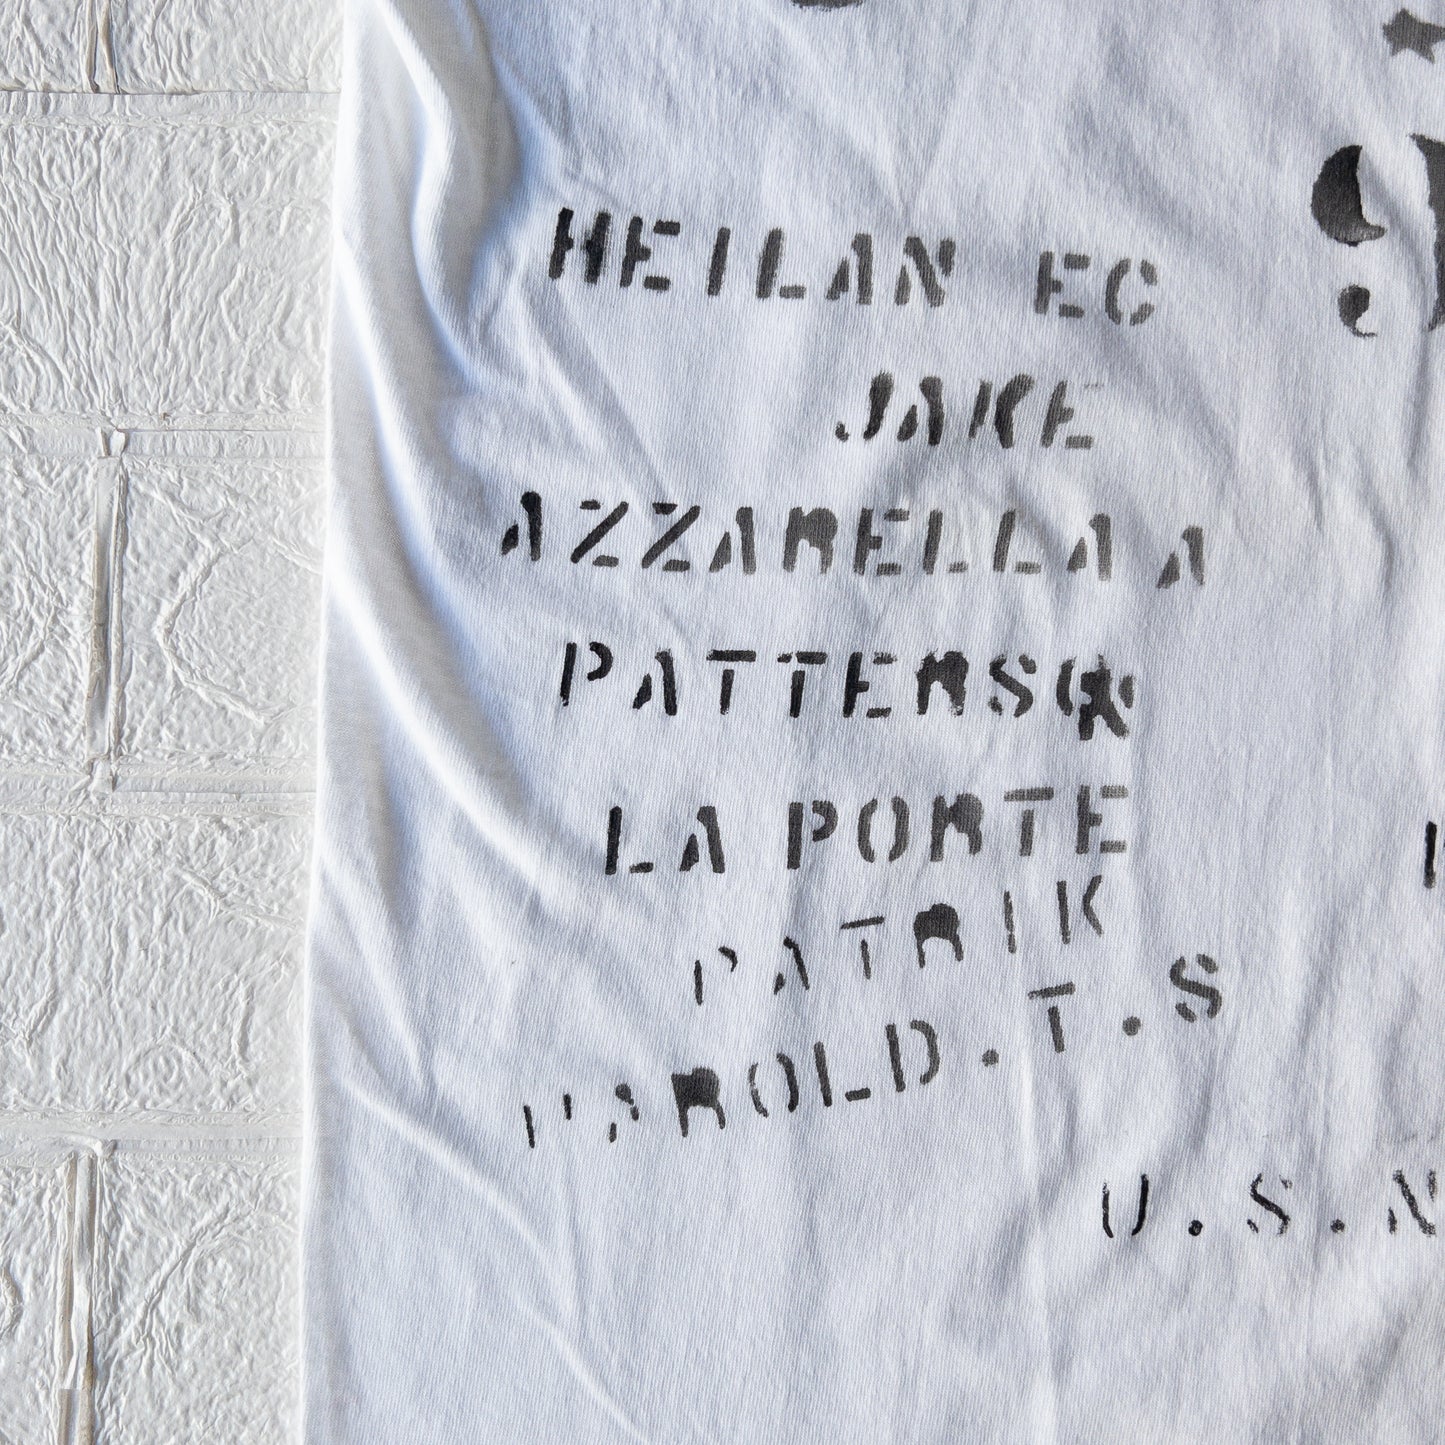 HEILAN EC
JAKE
AZZARELLA A
LA PORTE
PATRIK
HAROLD.T.S
U.S.N